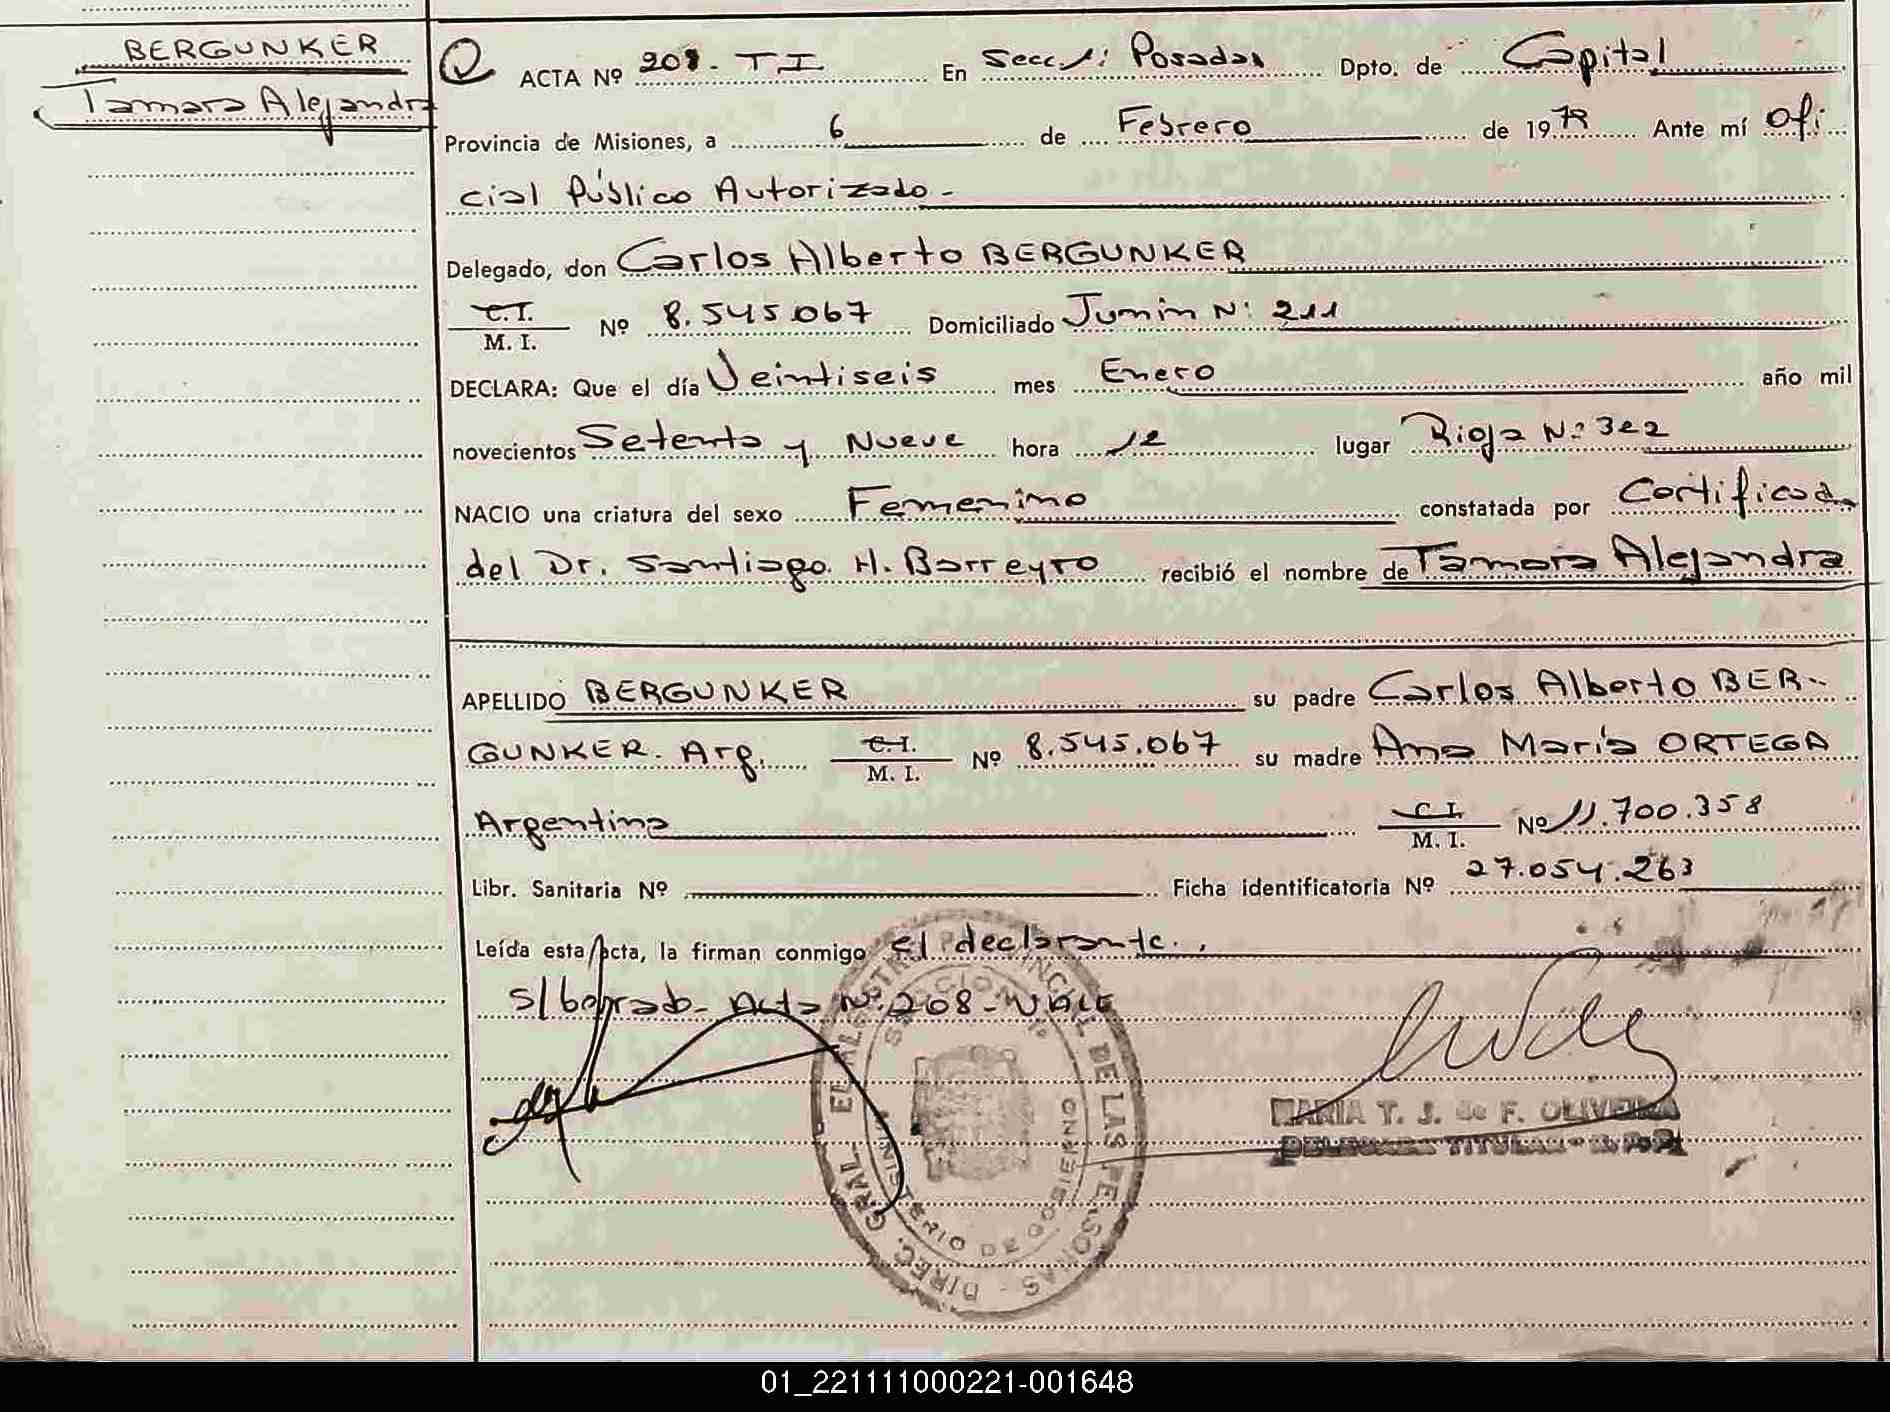 BERGUNKER
Tamara Alejandra
ACTA Nº 208 - T I En Secc 1: Posadas Dpto. de Capital
Provincia de Misiones, a 6 de Febrero de 1979 Ante mí Ofi
cial Público Autorizado -
Delegado, don Carlos Alberto BERGUNKER
C.I.
M. I. Nº 8.545.067 Domiciliado Junin N: 211
DECLARA: Que el día Veintiseis mes Enero año mil
novecientos Setenta y Nueve hora 12 lugar Rioja N: 322
NACIO una criatura del sexo Femenino constatada por Certificado
del Dr. Santiago H. Barreyro recibió el nombre de Tamara Alejandra
APELLIDO BERGUNKER su padre Carlos Alberto BER-
GUNKER. Arg. C.I.
M. I. Nº 8.545.067 su madre Ana María ORTEGA
Argentina C I.
M. I. Nº 11.700.358
Libr. Sanitaria Nº Ficha identificatoria Nº 27.054.263
Leída esta acta, la firman conmigo el declarante.
S/borrado - Acta Nº: 208 - VALE
MARIA T. J. de F. OLIVEIRA
DELEGADA TITULAR - R. P. P.
DIREC. GRAL. DEL REGISTRO PROVINCIAL DE LAS PERSONAS
MINISTERIO DE GOBIERNO
01_221111000221-001648